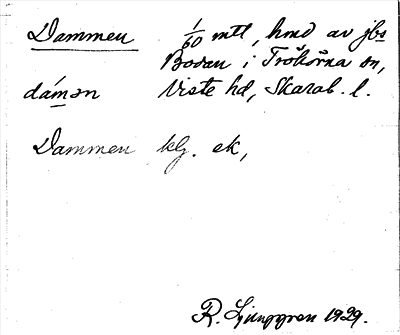 Dammen 1/60 mtl, hmd av jbs
Bosan i Tråkörna sn,
dámən Viste hd, Skarab. l.
Dammen klg. ek,
R. Ljunggren 1929.